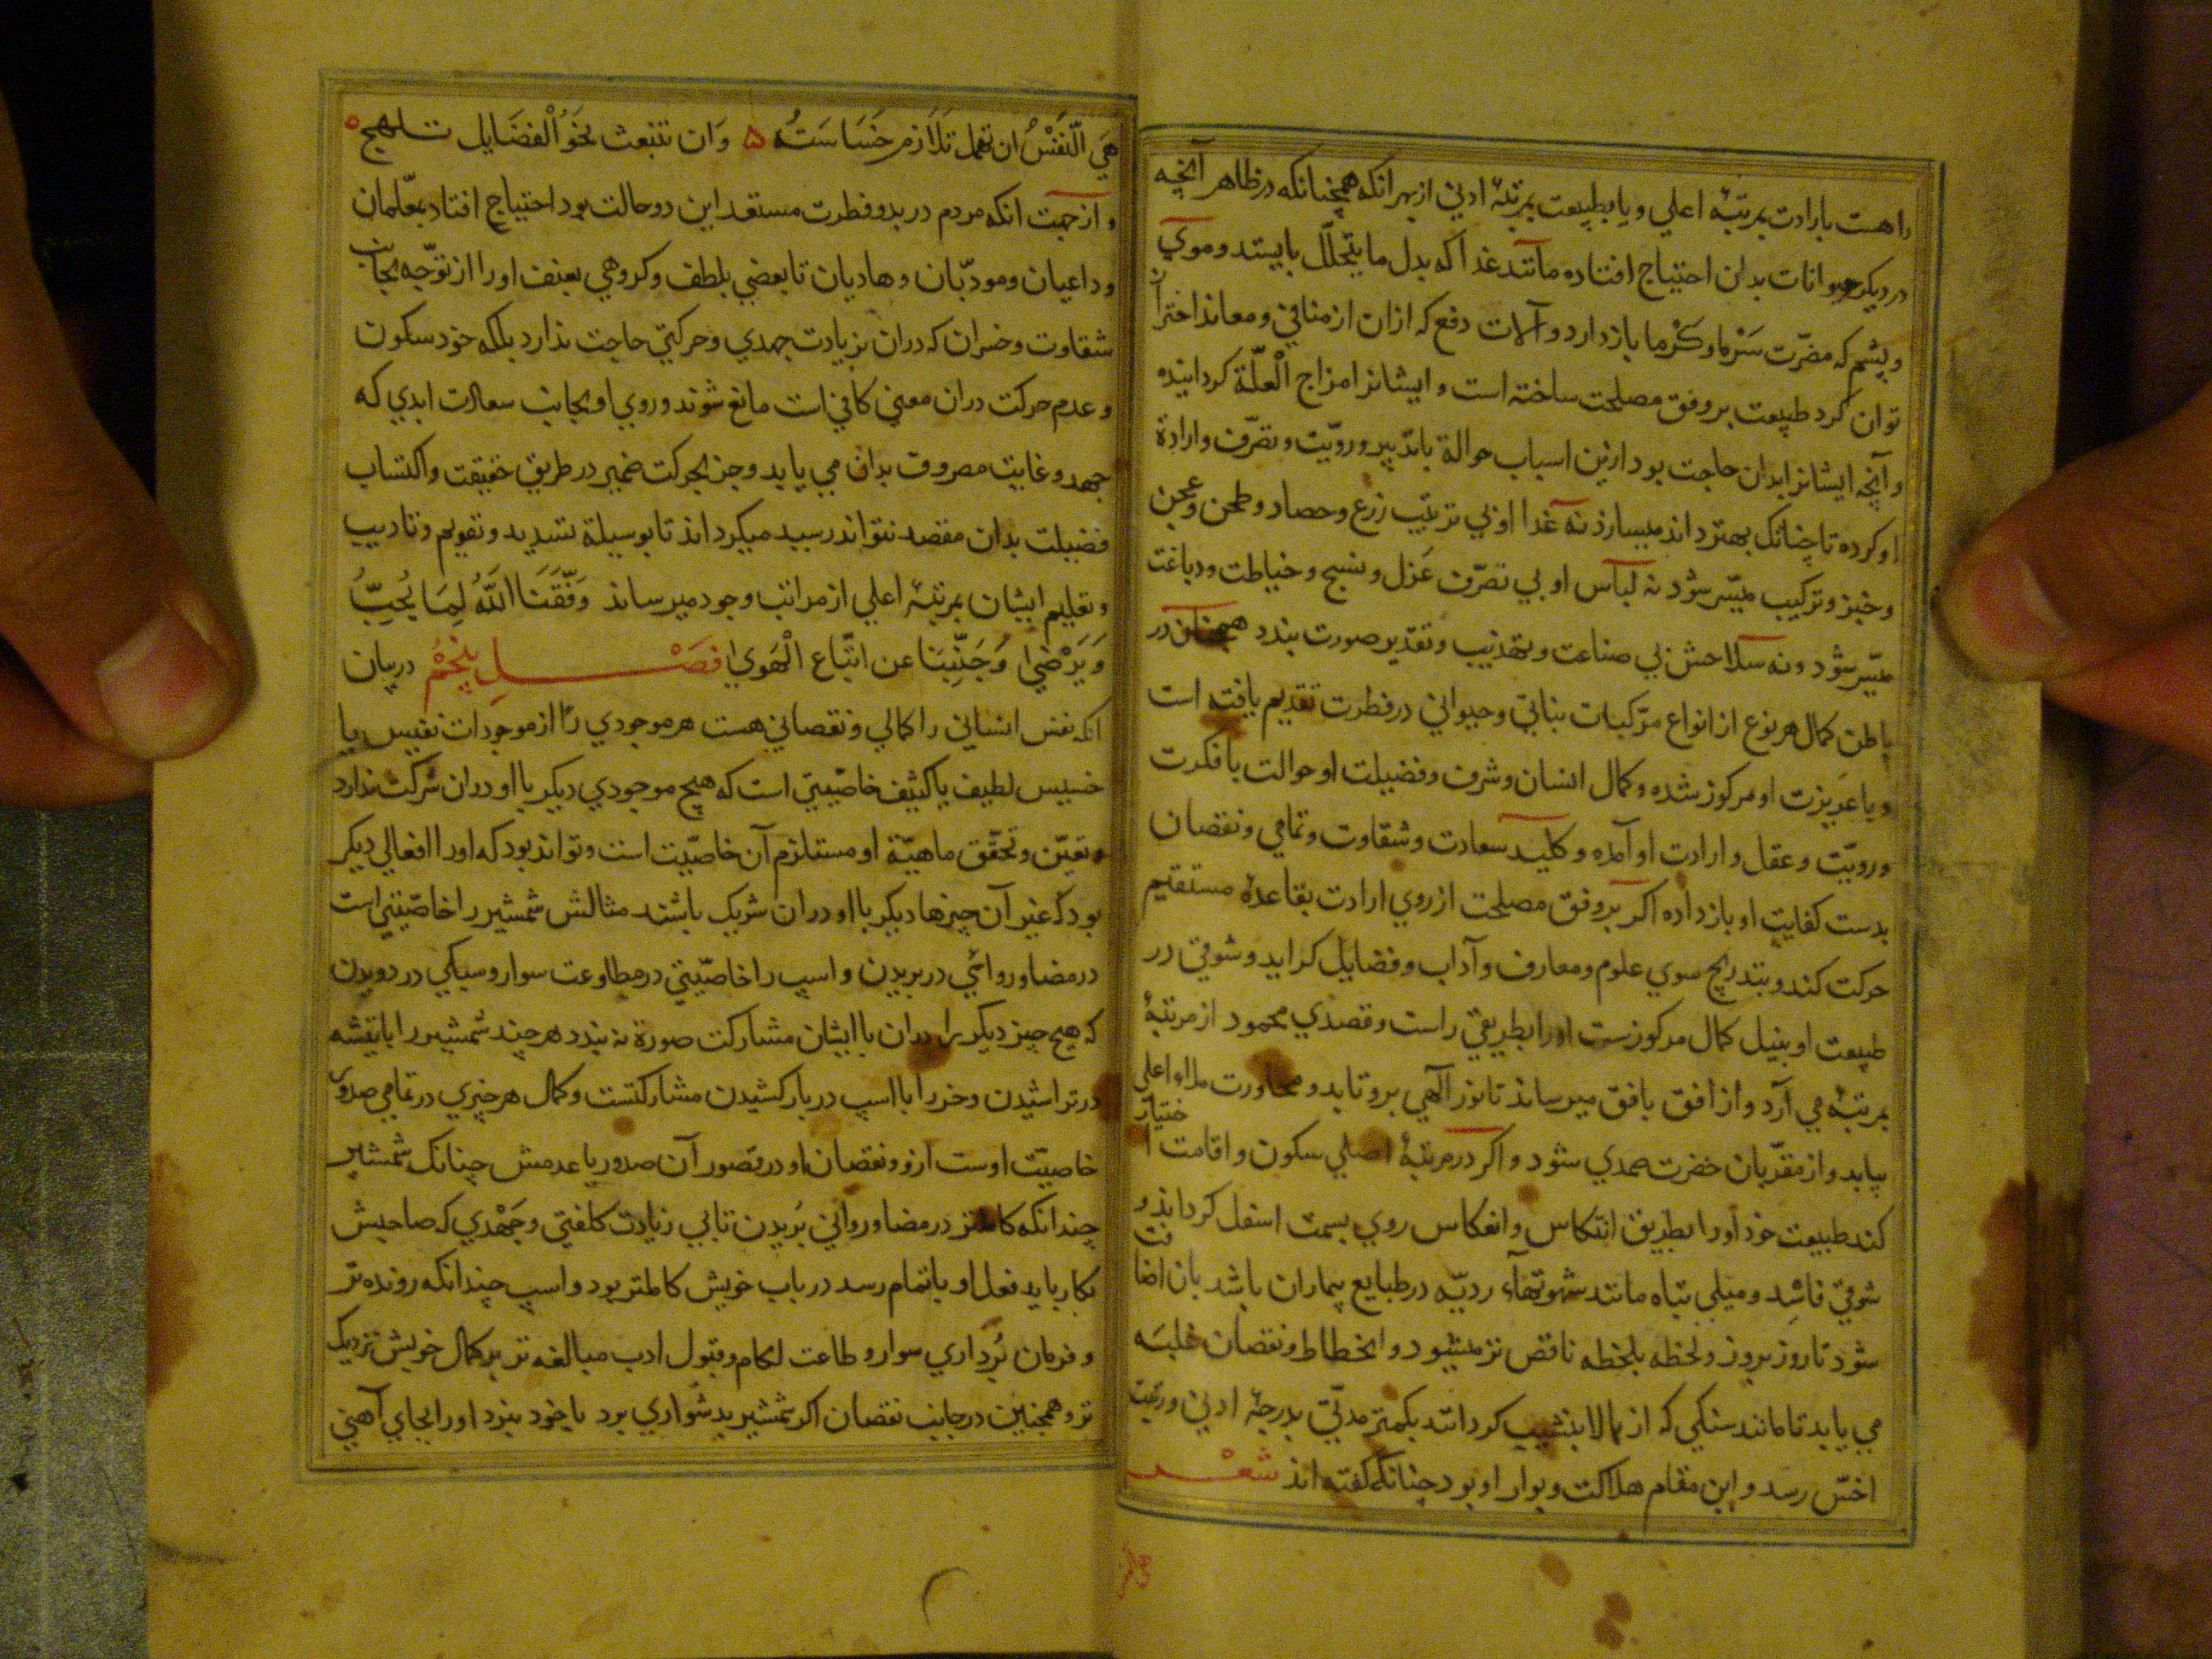 راهست بارادت بمرتبهٔ اعلی ویا بطبیعت بمرتبهٔ ادنی از بهر انکه همچنانکه در ظاهر آنچه
در دیگر حیوانات بدان احتیاج افتاده مانند غذا که بدل ما یتحلّل بایستد وموی
وپشم که مضرّت سَرْما وکَرْما باز دارد وآلات دفع که ازان از منافی ومعاند احتراز
توان کرد طبیعت بر وفق مصلحت ساخته است وایشانرا مزاج الْعلّة کردانیده
وآنچه ایشانرا بدان حاجت بود ازین اسباب حوالة باتدبیر ورویّت وتصرّف وارادة
او کرده تا چنانک بهتر داند میسازد نه غذا او بی ترتیب زرع وحصاد وطحن وعجن
وخبز وترکیب میسّر شود نه لباس او بی تصرّف غَزل ونسج وخیاطت ودباغت
میسّر شود ونه سلاحش بی صناعت وتهذیب وتقدیر صورت بندد همچنان در
باطن کمال هر نوع از انواع مرّکبات نباتی وحیوانی در فطرت تقدیم یافته است
وبا غریزت او مرکوز شده وکمال انسان وشرف وفضیلت او حوالت با فکرت
ورویّت وعقل وارادت او آمده وکلید سعادت وشقاوت وتمامی ونقصان
بدست کفایت او باز داده اکر بر وفق مصلحت از روی ارادت بقاعدهٔ مستقیم
حرکت کند وبتدریج سوی علوم ومعارف وآداب وفضایل کراید وشوقی در
طبیعت او بنیل کمال مرکوزست اورا بطریقی راست وقصدی محمود از مرتبهٔ
بمرتبهٔ می آرد واز افق بافق میرساند تا نور آلهی برو تابد ومجاورت ملاء اعلی
بیابد واز مقرّبان حضرت صمدی شود واکر در مرتبهٔ اصلی سکون واقامت اختیار
کند طبیعت خود اورا بطریق انتکاس وانعکاس روی بسمت اسفل کرداند و
شوقی فاسْد ومیلی تباه مانند شهوتهآء ردیّه در طبایع بیماران باشد بان اضافت
شود تا روز بروز ولحظه بلحظه ناقص تر میشود وانحطاط ونقصان غلبه
می یابد تا مانند سنکی که از بالا بنشیب کردانند بکمتر مدتی بدرجهٔ ادنی ورتبت
اخسّ رسد واین مقام هلاکت وبوار او بود چنانکه کفته اند شعْـــر
هی النفس
هِیَ الّنَفْسُ ان تهمل تَلَاَزم خَسَاسَتُه ۵ وَان تنبعث نحَوَ الْفضَایل تــلهج ۵
واز جهت انکه مردم در بدو فطرت مستعد این دو حالت بود احتیاج افتاد بمعّلمان
وداعیان ومودّبان وهادیان تا بعضی بلطف وکروهی بعنف اورا از توّجه بجانب
شقاوت وخسران که دران بزیادت جهدی وحرکتی حاجت ندارد بلکه خود سکون
وعدم حرکت دران معنی کافی است مانع شوند وروی او بجانب سعادت ابدی که
جهد وغایت مصروف بدان می باید وجز بحرکت ضمیر در طریق حقیقت واکتساب
فضیلت بدان مقصد نتواند رسید میکرداند تا بوسیلة تسدید وتقویم وتادیب
وتعلیم ایشان بمرتبهٔ اعلی از مراتب وجود میرساند وَفَّقَنَا اللَّهُ لِمَا یُحِبُّ
وَیَرْضیٰ وَجَنِّبَنَا عن اتّباع الْهَویٰ فصَـــلِ پَنْجُمْ در بیان
انکه نفس انسانی را کمالی ونقصانی هست هر موجودی را از موجودات نفیس یا
خسیس لطیف یا کثیف خاصّیتی است که هیچ موجودی دیکر با او دران شرکت ندارد
وتعیّن وتحقّق ماهیّة او مستلزم آن خاصّیت است وتواند بود که اورا افعالی دیکر
بود که غیر آن چیزها دیکر با او دران شریک باشند مثالش شمشیر را خاصّیتی است
در مضا وروائی در بریدن واسپ را خاصّیتی در مطاوعت سوار وسبکی در دویدن
که هیچ چیز دیکر را دران با ایشان مشارکت صورة نه بندد هر چند شمشیر را با تیشه
در تراشیدن وخر را با اسپ در بار کشیدن مشارکتست وکمال هر چیزی در تمامی صدور
خاصیّت اوست ازو ونقصان او در قصور آن صدور یا عدمش چنانک شمشیر
چندانکه کاملتر در مضا وروانی بُریدن تا بی زیادت کلفتی وجَهْدی که صاحبش
بکار باید فعل او باتمام رسد در باب خویش کاملتر بود واسپ چندانکه رونده تر
وفرمان بُرداری سوار وطاعت لکام وقبول ادب مبالغه تر بر کمال خویش نزدیک
تر وهمچنین در جانب نقصان اکر شمشیر بدشواری برد یا خود نبرد اورا بجای آهنی